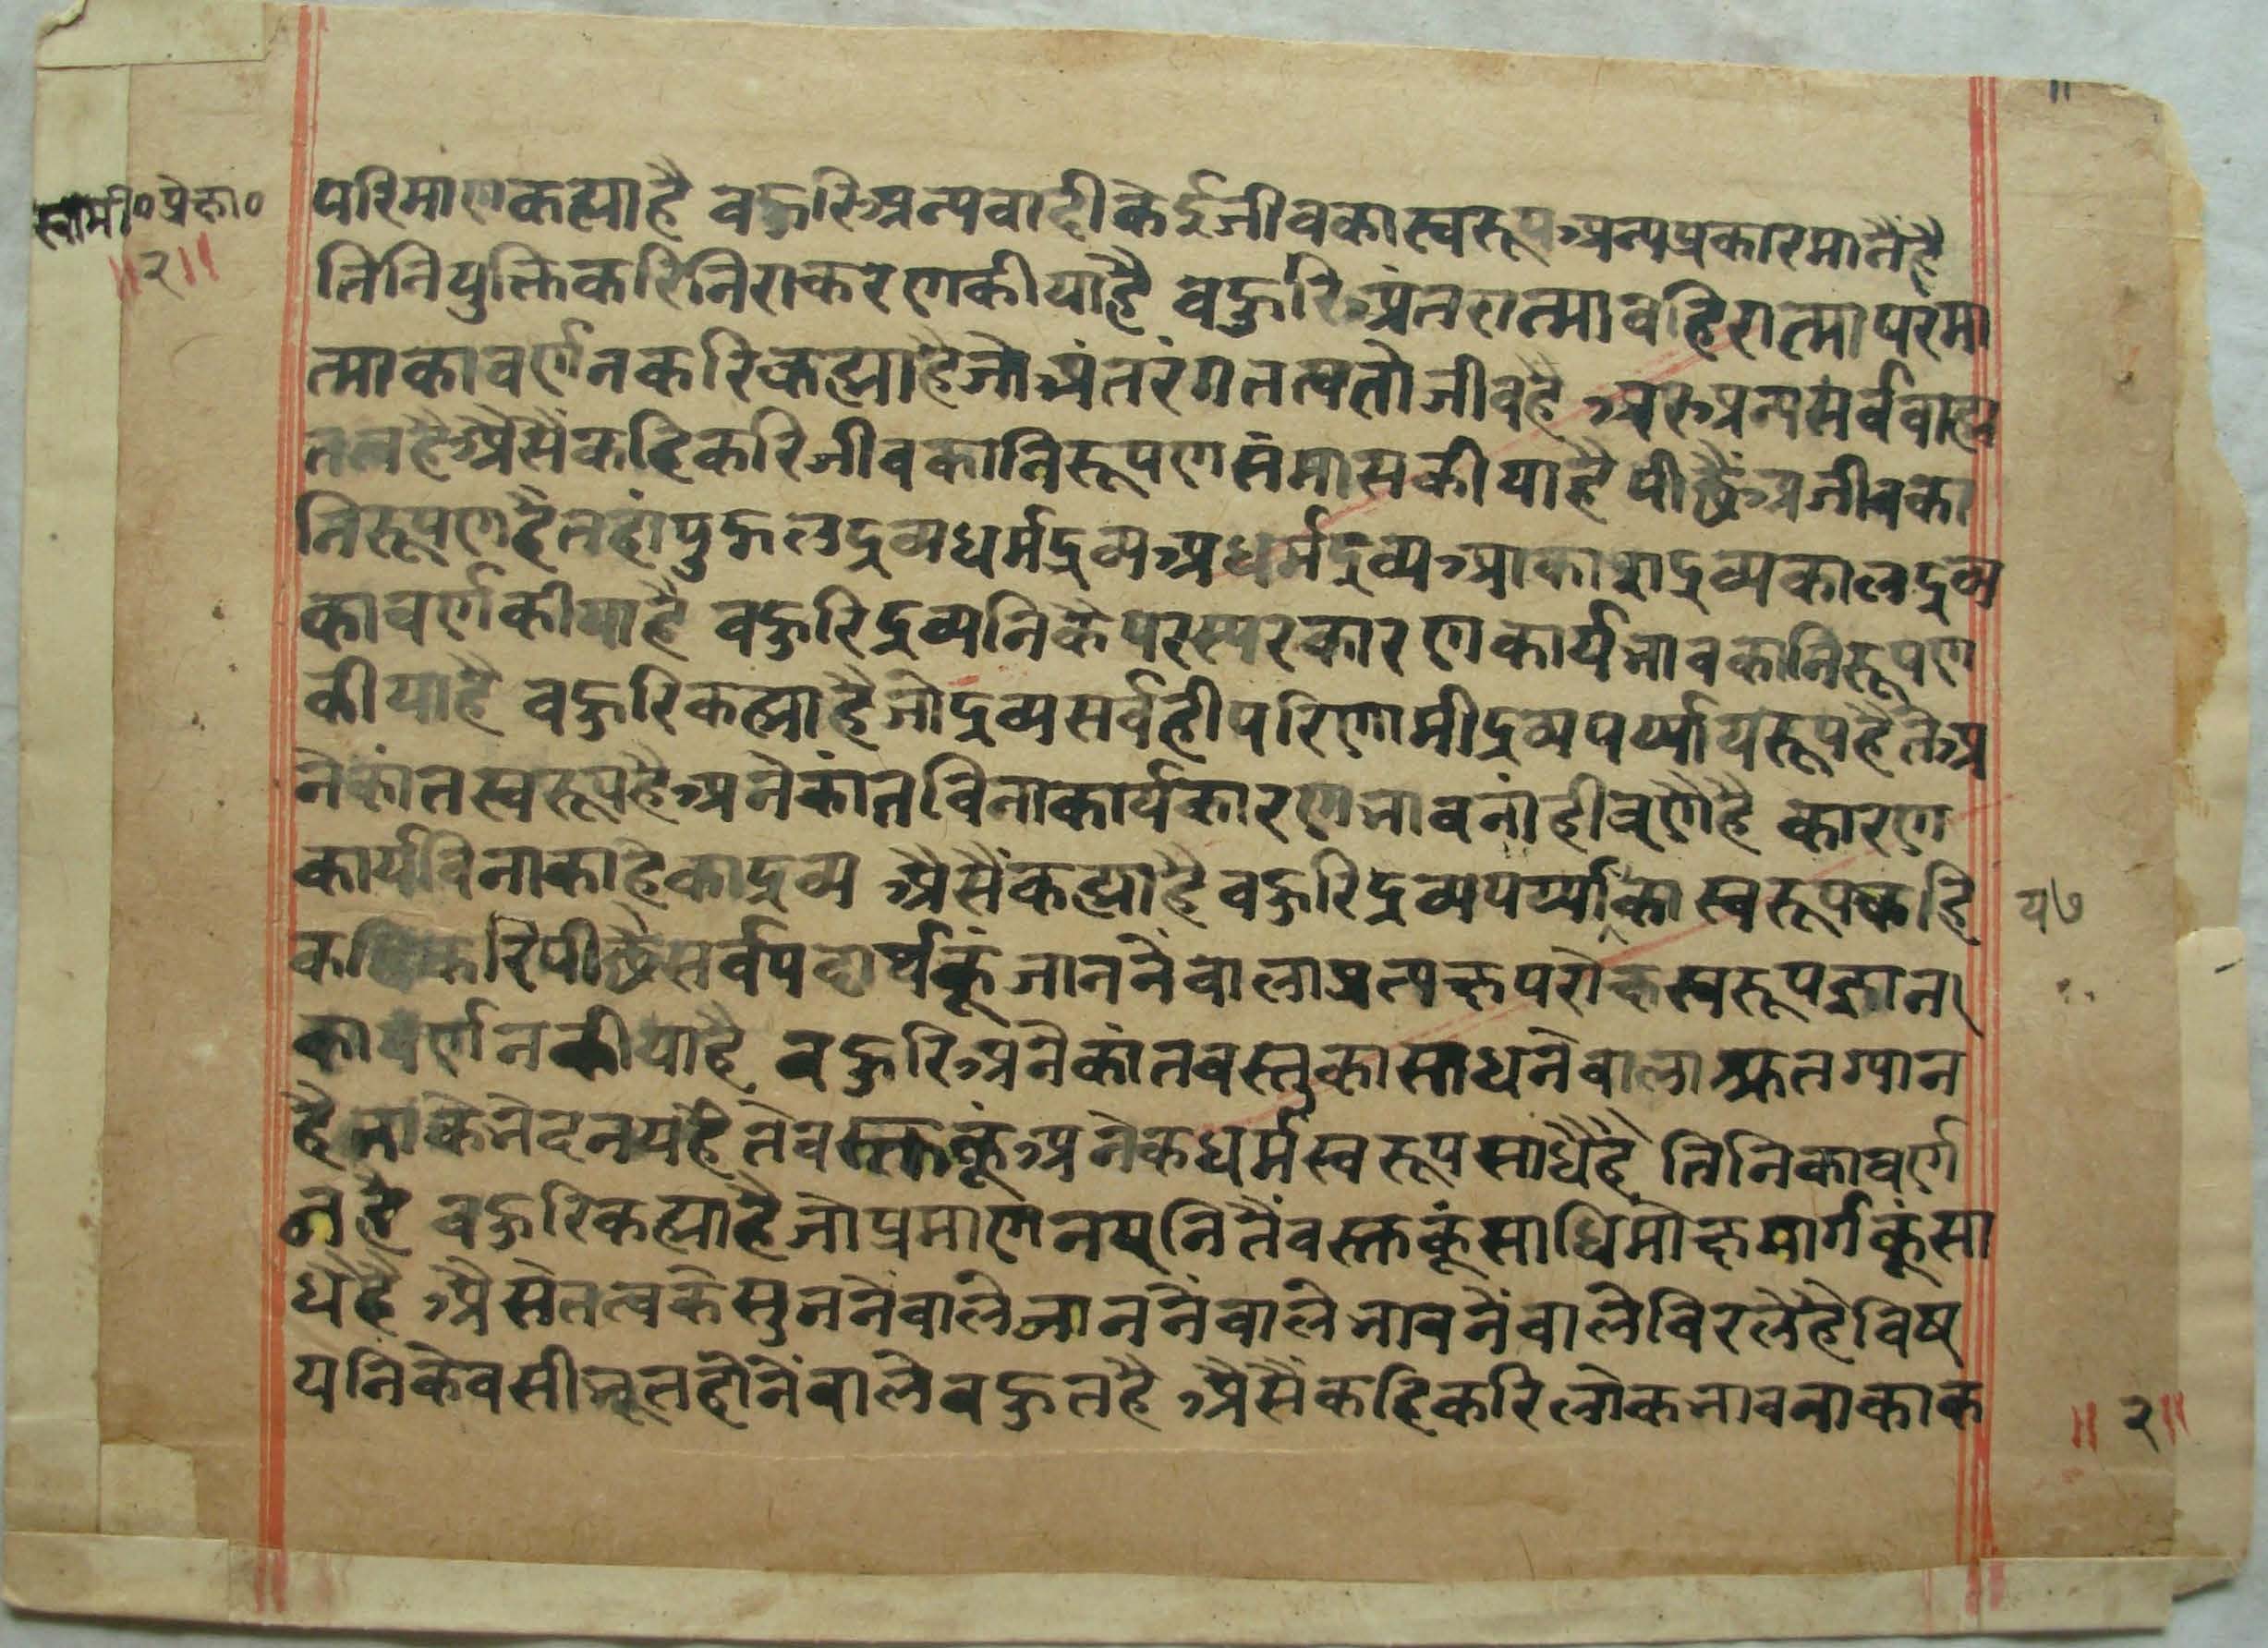 स्वामी०प्रेक्षा०
॥२॥
परिमाणकह्याहै बहुरिअन्यवादीकेईजीवकास्वरूपअन्यप्रकारमानैंहै
तिनियुक्तिकरिनिराकरणकीयाहै बहुरिअंतरात्माबहिरात्मापरमा
त्माकावर्णनकरिकह्याहैजोअंतरंगतत्वतोजीवहै अरुअन्यसर्वबाह्य
तत्वहैअैसैंकहिकरिजीवकानिरूपणसमासकीयाहै पीछैंअजीवका
निरूपणहैतहांपुद्गलद्रव्यधर्मद्रव्यअधर्मद्रव्यआकाशद्रव्यकालद्रव्य
कावर्णकीयाहै बहुरिद्रव्यनिकैपरस्परकारणकार्यभावकानिरूपण
कीयाहै बहुरिकह्याहैजोद्रव्यसर्वहीपरिणामीद्रव्यपर्य्यायरूपहैतेअ
नेकांतस्वरूपहैअनेकांतविनाकार्यकारणभावनांहीबणैहै कारण
कार्यविनाकाहेकाद्रव्य अैसैंकह्याहै बहुरिद्रव्यपर्य्याकास्वरूपकहि
य७
करिपीछैसर्वपदार्थकूंजाननेंवालाप्रत्यक्षपरोक्षस्वरूपज्ञान
कावर्णनकीयाहै बहुरिअनेकांतवस्तुकासाधनेवालाश्रुतग्यान
हैताकेभेदनयहैतेवस्तुकूंअनेकधर्मस्वरूपसाधैहै तिनिकावर्ण
नहै बहुरिकह्याहैजोप्रमाणनयनितैंवस्तुकूंसाधिमोक्षमार्गकूंसा
धैहै अैसेतत्वकेसुननेवालेजाननेंवालेभावनेंवालेविरलेहैविष
यनिकेवसीभूतहोनेंवालेबहुतहै अैसैंकहिकरिलोकभावनाकाक
॥२॥